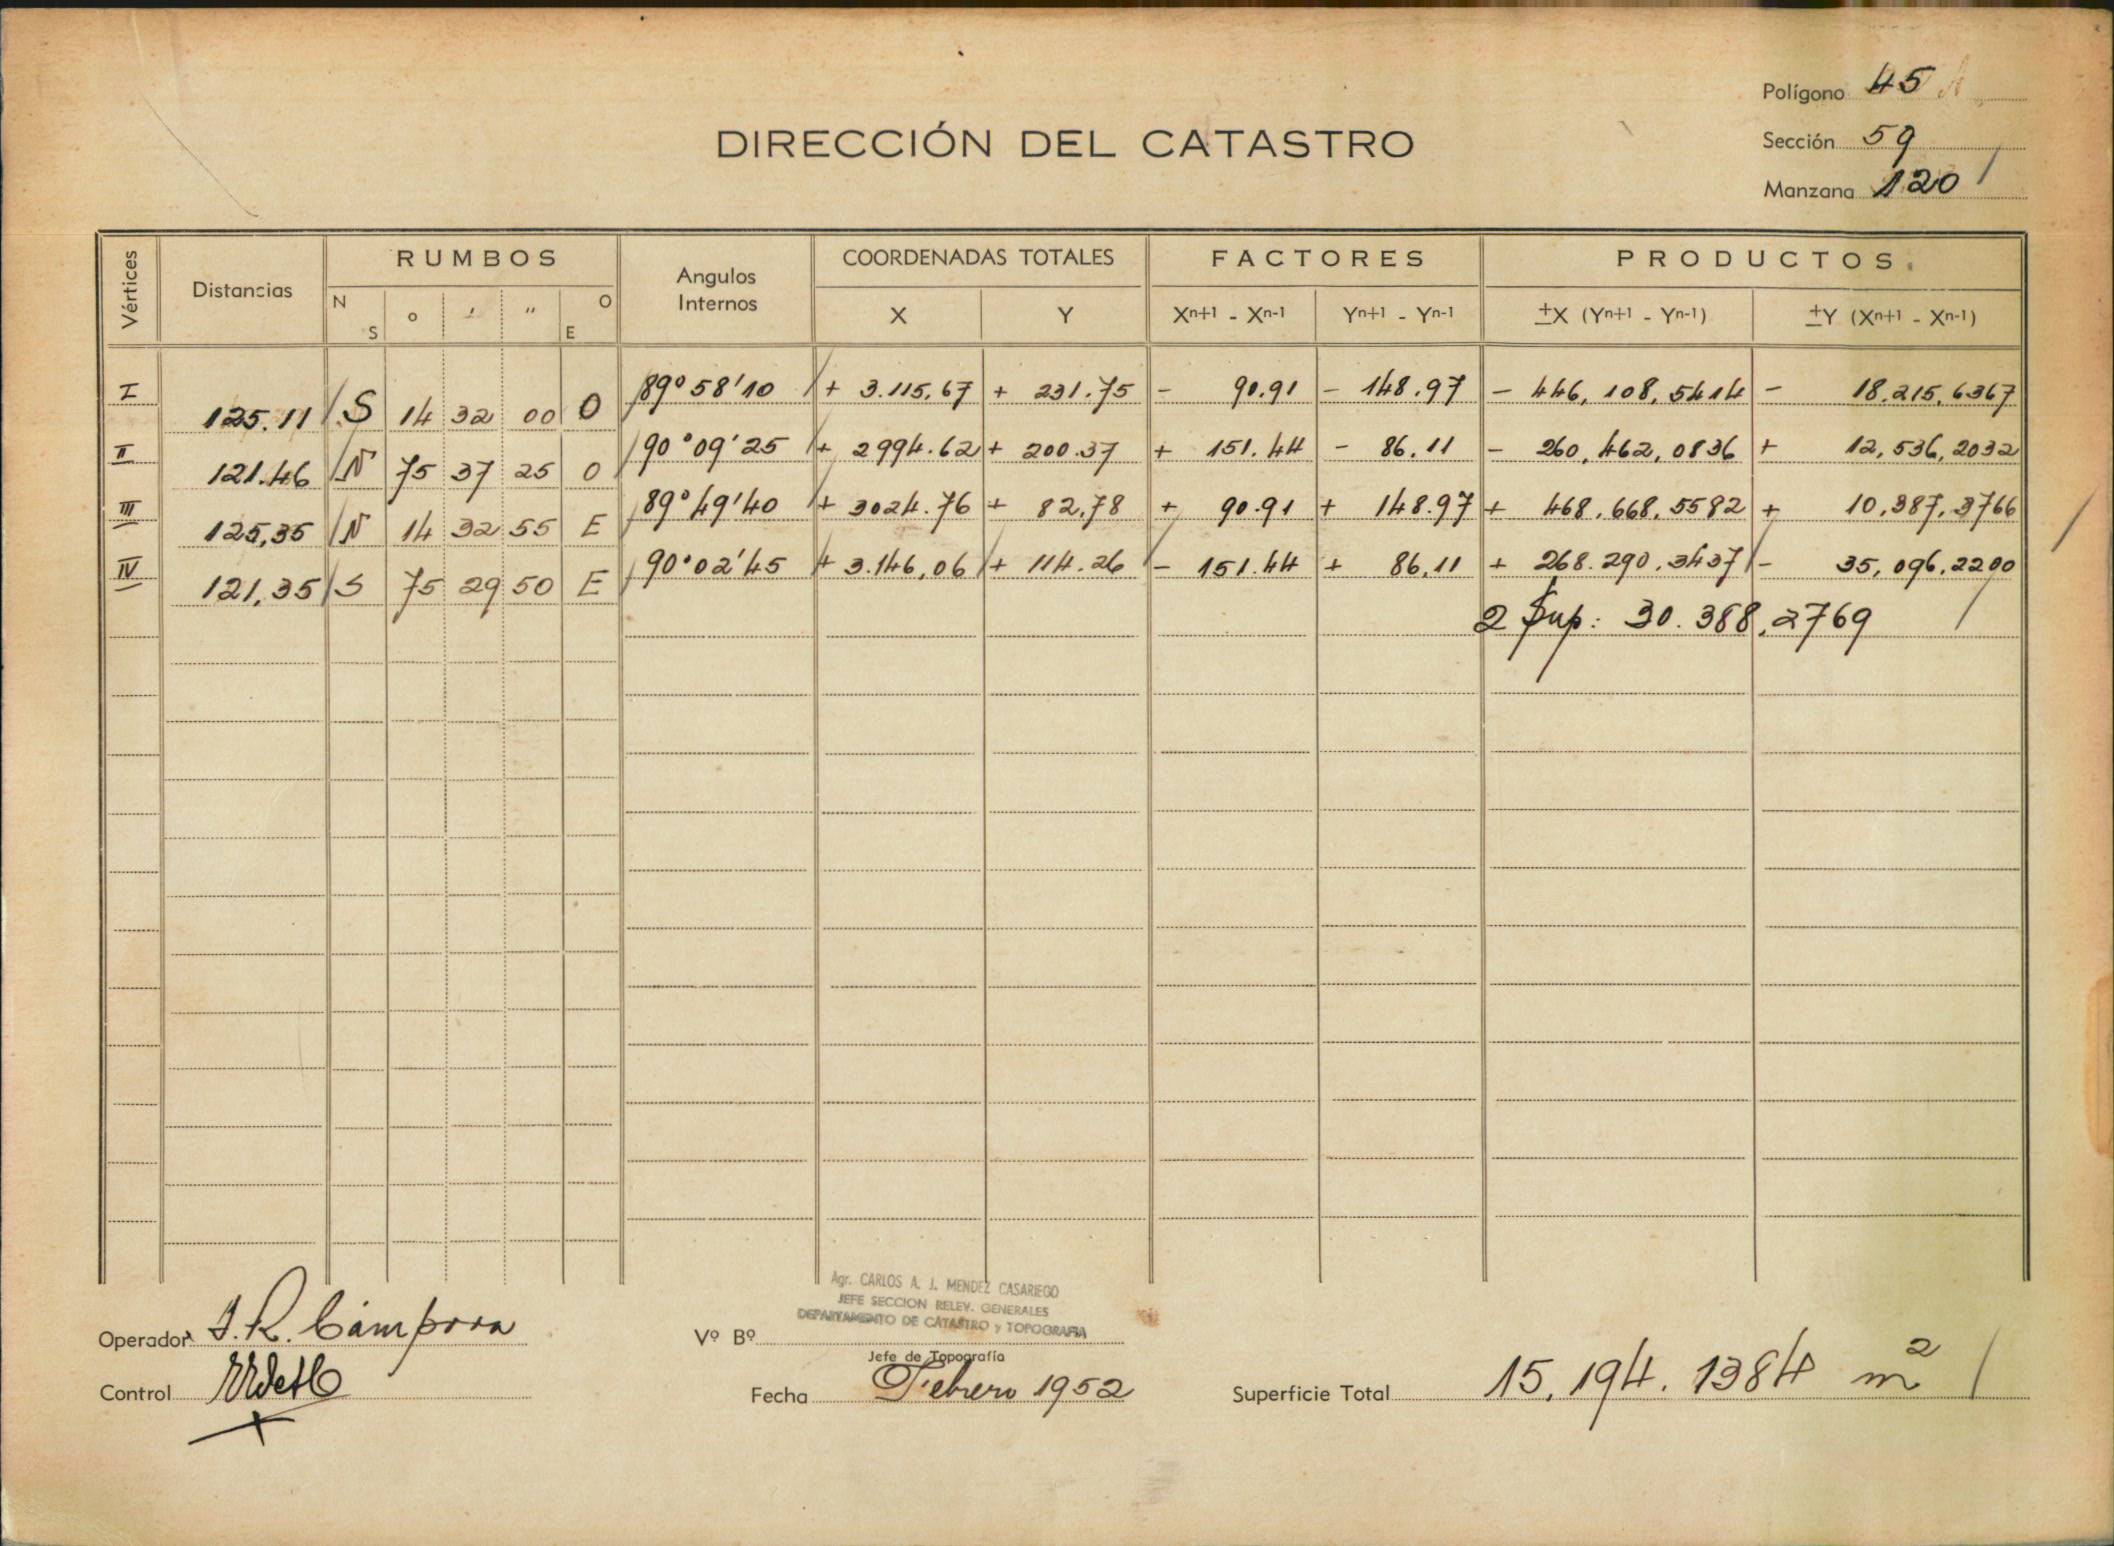 Polígono 45
DIRECCIÓN DEL CATASTRO
Sección 59
Manzana 120
Vértices
Distancias
RUMBOS
N S o ' " O E
Angulos Internos
COORDENADAS TOTALES
X Y
FACTORES
Xn+1 - Xn-1 Yn+1 - Yn-1
PRODUCTOS
±X (Yn+1 - Yn-1) ±Y (Xn+1 - Xn-1)
I 89° 58' 10 + 3.115,67 + 231.75 - 90.91 - 148.97 - 446,108,5414 - 18.215,6367
125.11 S 14 32 00 O
II 90° 09' 25 + 2994.62 + 200.37 + 151.44 - 86.11 - 260,462,0836 + 12,536,2032
121.46 N 75 37 25 O
III 89° 49' 40 + 3024.76 + 82,78 + 90.91 + 148.97 + 468.668,5582 + 10,387,3766
125,35 N 14 32 55 E
IV 90° 02' 45 + 3.146,06 + 114.26 - 151.44 + 86,11 + 268.290.3437 - 35,096.2200
121,35 S 75 29 50 E
2 Sup: 30.388,2769
Agr. CARLOS A. J. MENDEZ CASARIEGO
JEFE SECCION RELEV. GENERALES
DEPARTAMENTO DE CATASTRO y TOPOGRAFIA
Operador J. R. Cámpora
Vº Bº
Jefe de Topografía
Control
Fecha Febrero 1952
Superficie Total 15,194.1384 m2